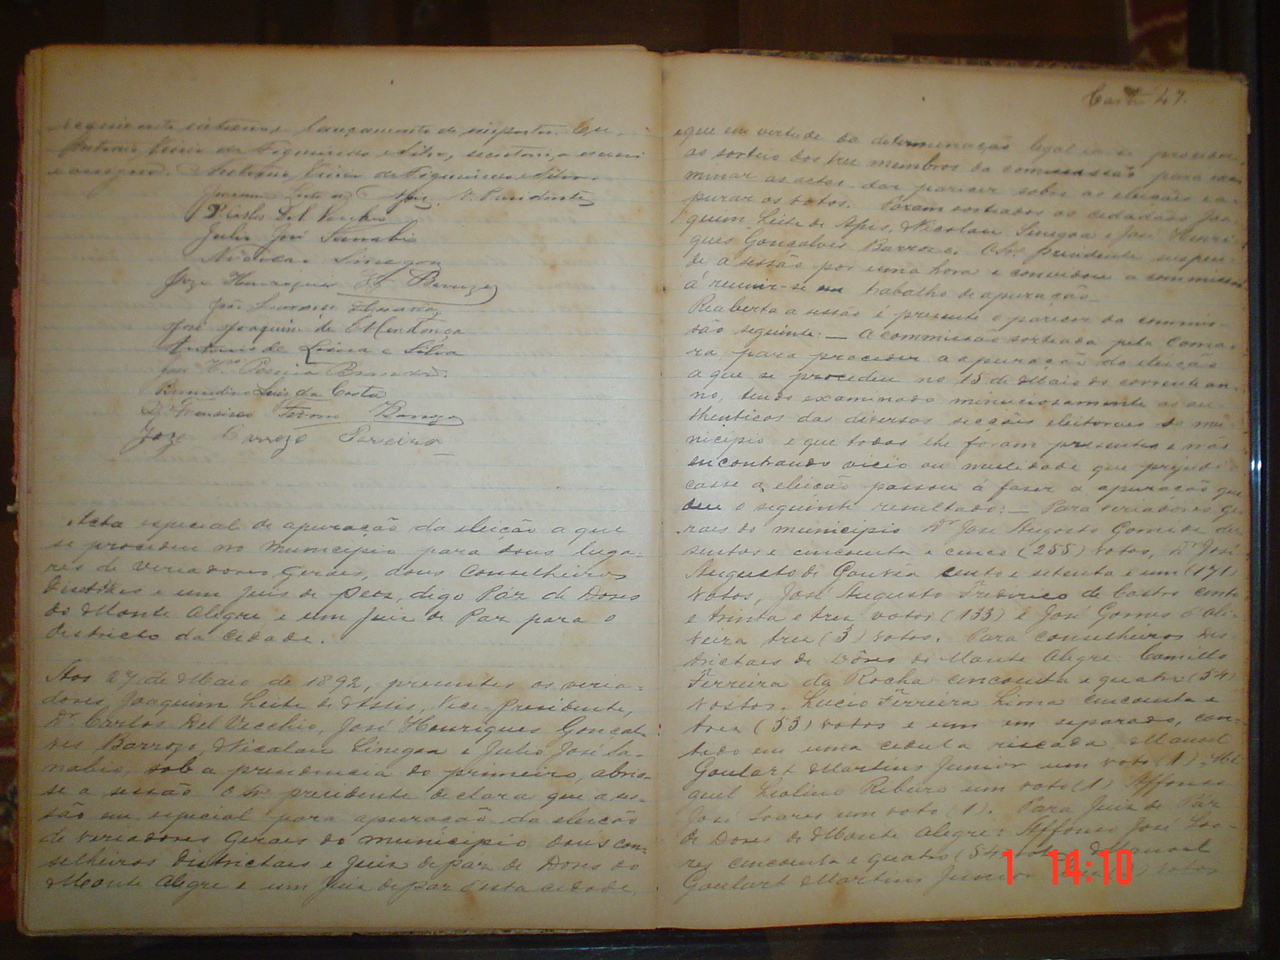 lançamento de impostos. Eu,
Antonio da Figueiredo e Silva, secretario, o escrevi
e assigno. Antonio de Figueiredo e Silva
Joaquim Leite de Assis, V. Presidente
Carlos Del Vecchio
Julio José Sanabio
Nicolau Sinegoa
Joze Henriques G. Barrozo
José Joaquim de Mendonça
Antonio de Lima e Silva
José Pereira
Bernardino Luis da Costa
Francisco
Joze Pereira
Acta especial de apuração da eleição a que
se procedeu no Municipio para dous luga-
res de vereadores geraes, dous conselheiros
districtaes e um juis de peas, digo Paz de Dores
do Monte Alegre e um juis de Paz para o
districto da cidade.
Aos 27 de Maio de 1892, presentes os verea-
dores, Joaquim Leite de Assis, Vice-presidente,
Dr. Carlos Del Vecchio, José Henriques Gonçal-
ves Barrozo, Nicolau Sinegoa e Julio José Sa-
nabio, sob a presidencia do primeiro, abrio-
se a sessão. O Sr. presidente declara que a ses-
são era especial para apuração da eleição
de vereadores geraes do municipio dous con-
selheiros districtaes e juis de paz de Dores do
Monte Alegre e um Juis de paz desta cidade,
47.
que em virtude da determinação legal ia-se proceder
ao sorteio dos tres membros da commissão para exa
minar as actas dar parecer sobre as eleições e a-
purar os votos. Foram sorteados os cidadãos Joa
quim Leite de Assis, Nicolau Sinegoa e José Henri
ques Gonçalves Barrozo. O Sr. presidente suspen-
de a sessão por uma hora e convidou a commissão
á reunir-se em trabalho de apuração.
Reaberta a sessão é presente o parecer da commis-
são seguinte: — A commissão sorteada pela Cama-
ra para proceder a apuração da eleição
a que se procedeu no 15 de Maio do corrente an-
no, tendo examinado minuciosamente as au-
thenticas das diversas secções eleitoraes do mu-
nicipio e que todas lhe foram presentes e não
encontrando vicio ou nullidade que prejudi-
casse a eleição passou á fazer a apuração que
deu o seguinte resultado: — Para vereadores ge-
raes do municipio Dr. José Augusto Gomide du-
sentos e cincoenta e cinco (255) votos, Dr. José
Augusto de Gouvêa cento e setenta e um (171)
votos, José Augusto Frederico de Castro cento
e trinta e tres votos (133) e José Gomes d'Oli-
veira tres (3) votos. Para conselheiros dis-
trictaes de Dôres do Monte Alegre: Camillo
Ferreira da Rocha cincoenta e quatro (54)
votos. Lucio Ferreira Lima cincoenta e
tres (53) votos e um em separado, con-
tido em uma cedula riscada, Manoel
Goulart Martins Junior um voto (1), Mi-
guel Ribeiro um voto (1) Affonso
José Soares um voto (1). Para Juis de Paz
de Dores do Monte Alegre: Affonso José Soa-
res cincoenta e quatro (54) votos Manoel
Goulart Martins Junior votos
1 14:10